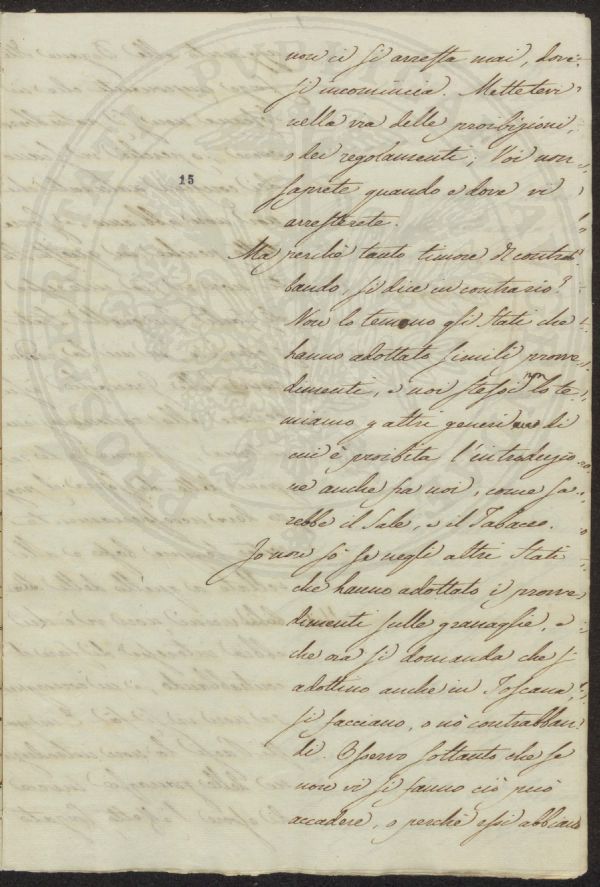 non ci si arresta mai, dove
si incomincia. Mettetevi
nella via delle proibizioni,
o dei regolamenti; Voi non
15
saprete quando e dove vi
arresterete.
Ma perchè tanto timore di contrab-
bando, si dice in contrario?
Non lo temono gli Stati che
hanno adottato simili provve-
dimenti, e noi stessi non lo te-
miamo p altri generi di
cui è proibita l'introduzio-
ne anche fra noi, come sa-
rebbe il Sale, e il Tabacco.
Io non sò se negli altri Stati
che hanno adottato i provve-
dimenti sulle granaglie, e
che ora si domanda che si
adottino anche in Toscana,
si facciano, o nò contrabban-
di. Osservo soltanto che se
non vi si fanno ciò può
accadere, o perchè essi abbiano